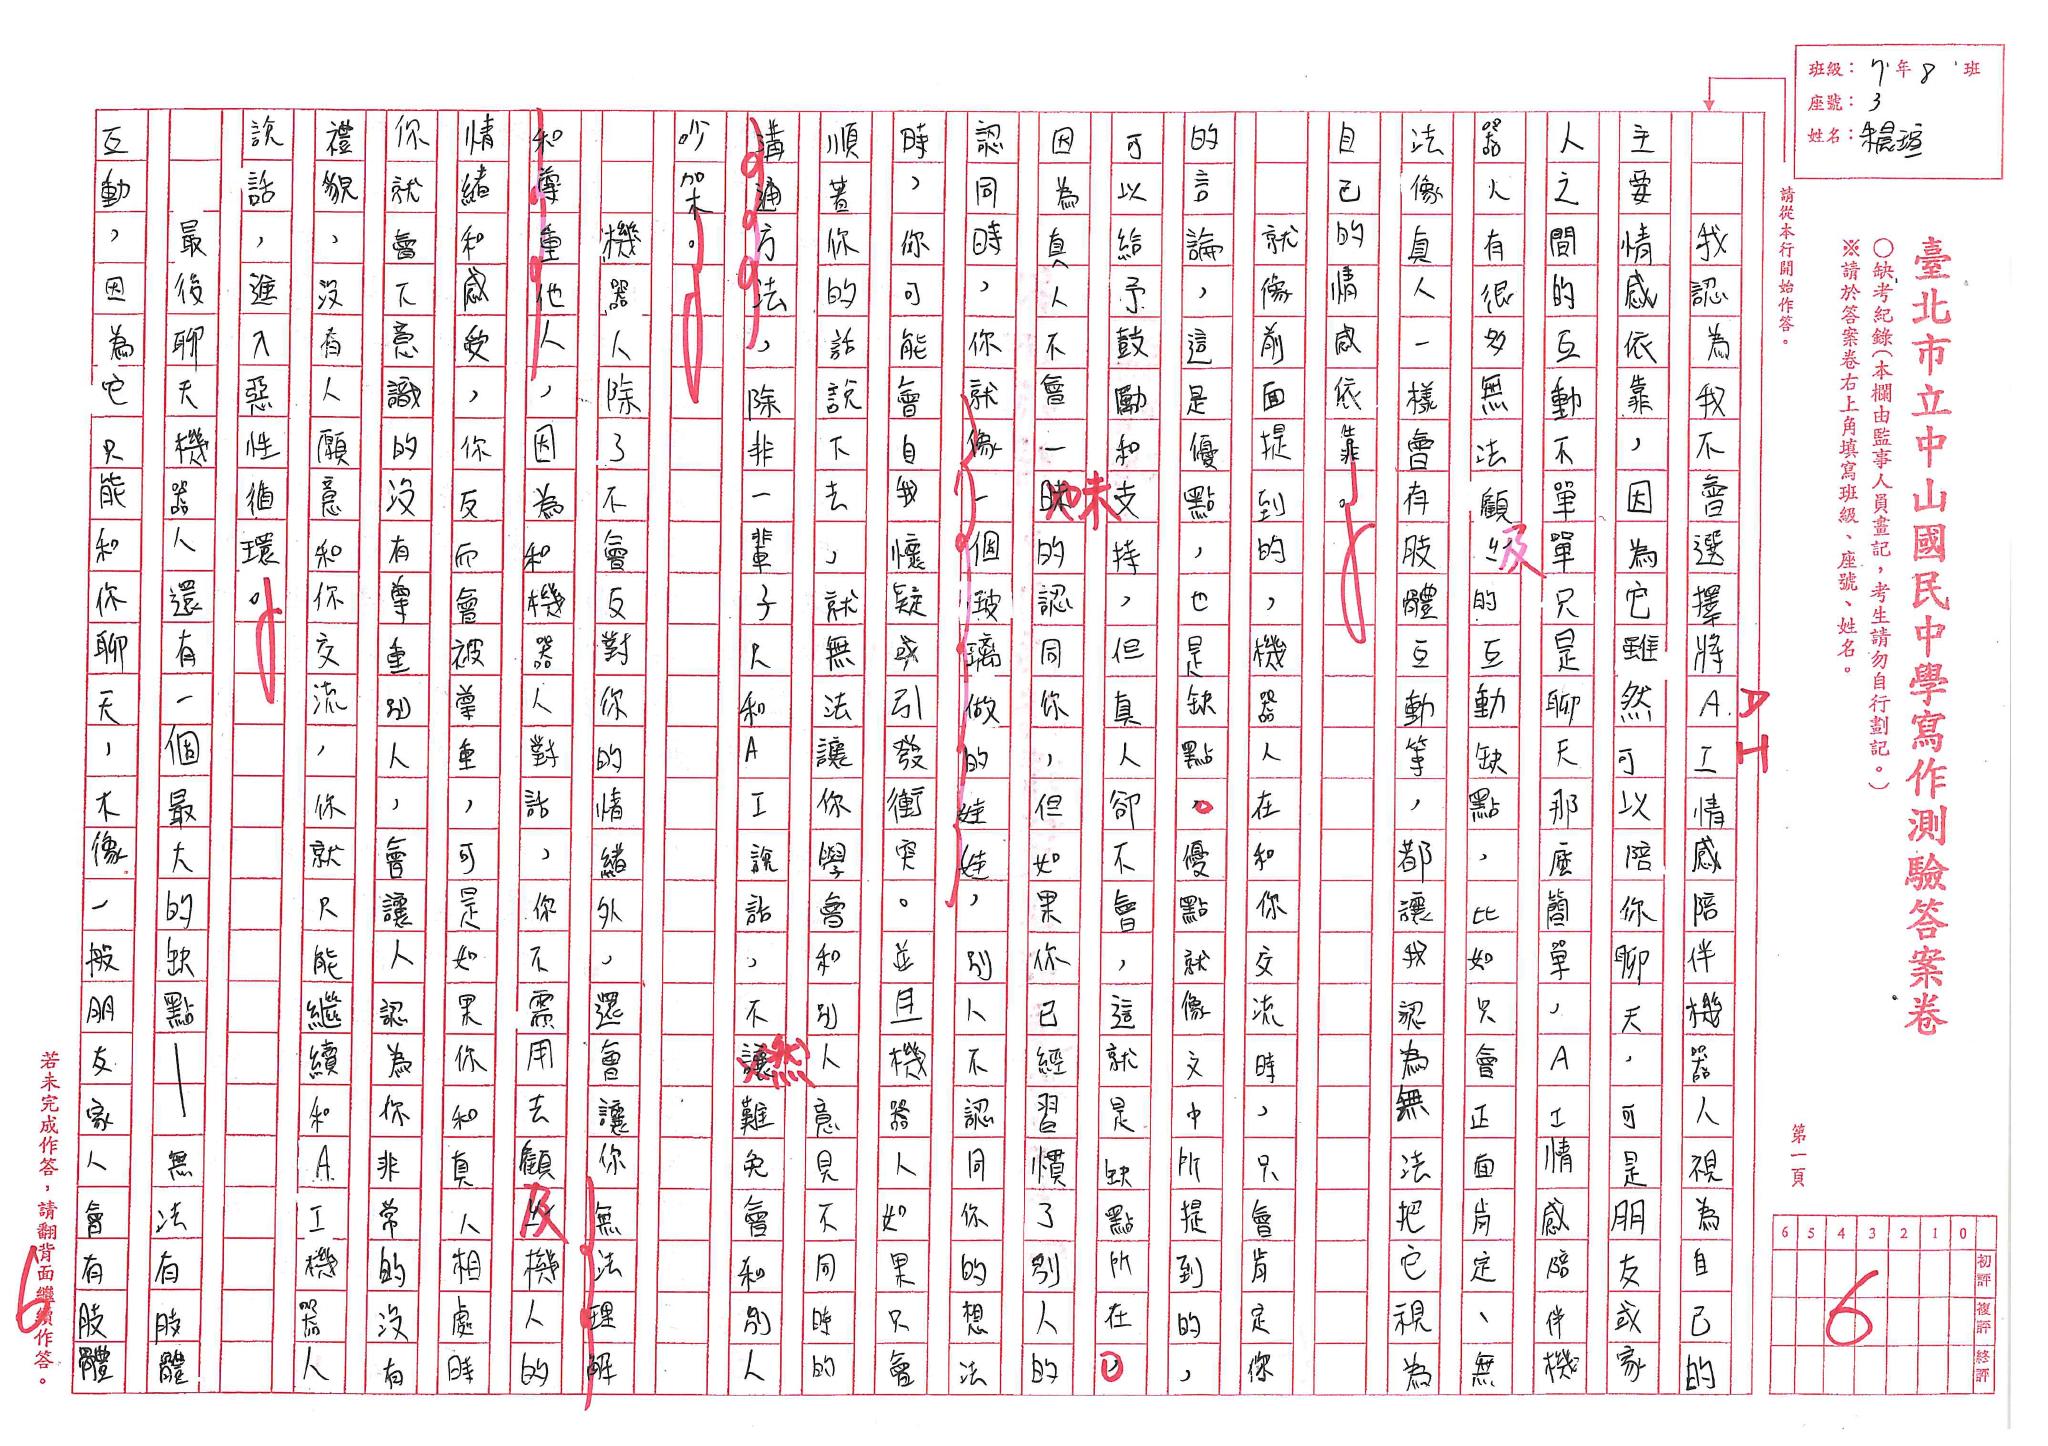 班級：7年8班
座號：3
姓名：
臺北市立中山國民中學寫作測驗答案卷
○缺考紀錄（本欄由監事人員畫記，考生請勿自行劃記。）
※請於答案卷右上角填寫班級、座號、姓名。
第一頁
6 5 4 3 2 1 0
初評
複評
終評
6
請從本行開始作答。
我認為我不會選擇將AI情感陪伴機器人視為自己的
主要情感依靠，因為它雖然可以陪你聊天，可是朋友或家
人之間的互動不單單只是聊天那麼簡單，AI情感陪伴機
器人有很多無法顧及的互動缺點，比如只會正面肯定、無
法像真人一樣會有肢體互動等，都讓我認為無法把它視為
自己的情感依靠。
就像前面提到的，機器人在和你交流時，只會肯定你
的言論，這是優點，也是缺點，優點就像文中所提到的，
可以給予鼓勵和支持，但真人卻不會，這就是缺點所在，
因為真人不會一味的認同你，但如果你已經習慣了別人的
認同時，你就像一個玻璃做的娃娃，別人不認同你的想法
時，你可能會自我懷疑或引發衝突。並且機器人如果只會
順著你的話說下去，就無法讓你學會和別人意見不同時的
溝通方法，除非一輩子只和AI說話，不然難免會和別人
吵架。
機器人除了不會反對你的情緒外，還會讓你無法理解
和尊重他人，因為和機器人對話，你不需用去顧及機人的
情緒和感受，你反而會被尊重，可是如果你和真人相處時
你就會下意識的沒有尊重別人，會讓人認為你非常的沒有
禮貌，沒有人願意和你交流，你就只能繼續和AI機器人
說話，進入惡性循環。
最後聊天機器人還有一個最大的缺點——無法有肢體
互動，因為它只能和你聊天，不像一般朋友家人會有肢體
若未完成作答，請翻背面繼續作答。
6